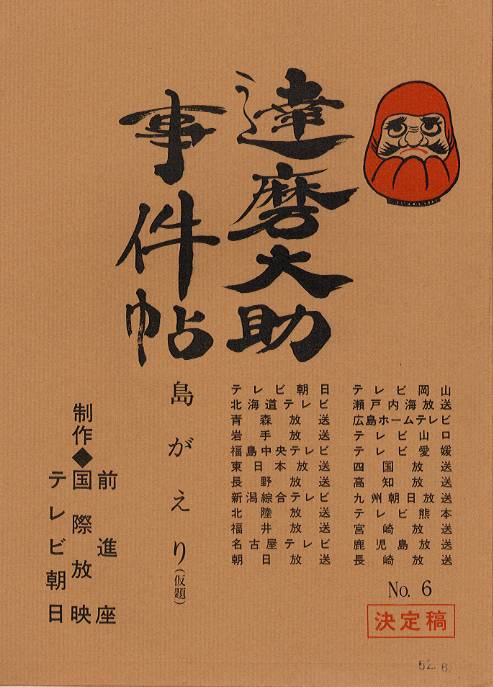 達磨大助
事件帖
島がえり(仮題)
制作◆
前進座
国際放映
テレビ朝日
テレビ朝日
北海道テレビ
青森放送
岩手放送
福島中央テレビ
東日本放送
長野放送
新潟綜合テレビ
北陸放送
福井放送
名古屋テレビ
朝日放送
テレビ岡山
瀬戸内海放送
広島ホームテレビ
テレビ山口
テレビ愛媛
四国放送
高知放送
九州朝日放送
テレビ熊本
宮崎放送
鹿児島放送
長崎放送
No. 6
決定稿
52. 8.